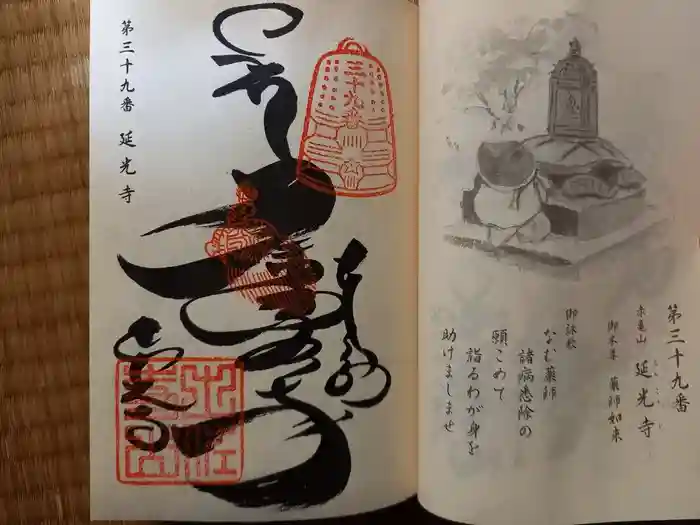 第三十九番
赤亀山 延光寺
えんこうじ
御本尊 薬師如来
御詠歌
なむ薬師
諸病悉除の
願こめて
詣るわが身を
助けましませ
第三十九番 延光寺
三十九番
奉納
延光寺